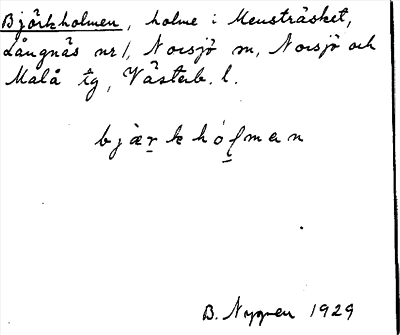 Björkholmen, holme i Mensträsket,
Långnäs nr 1, Norsjö sn, Norsjö och
Malå tg, Västerb. l.
bjærkhólmen
B. Nygren 1929